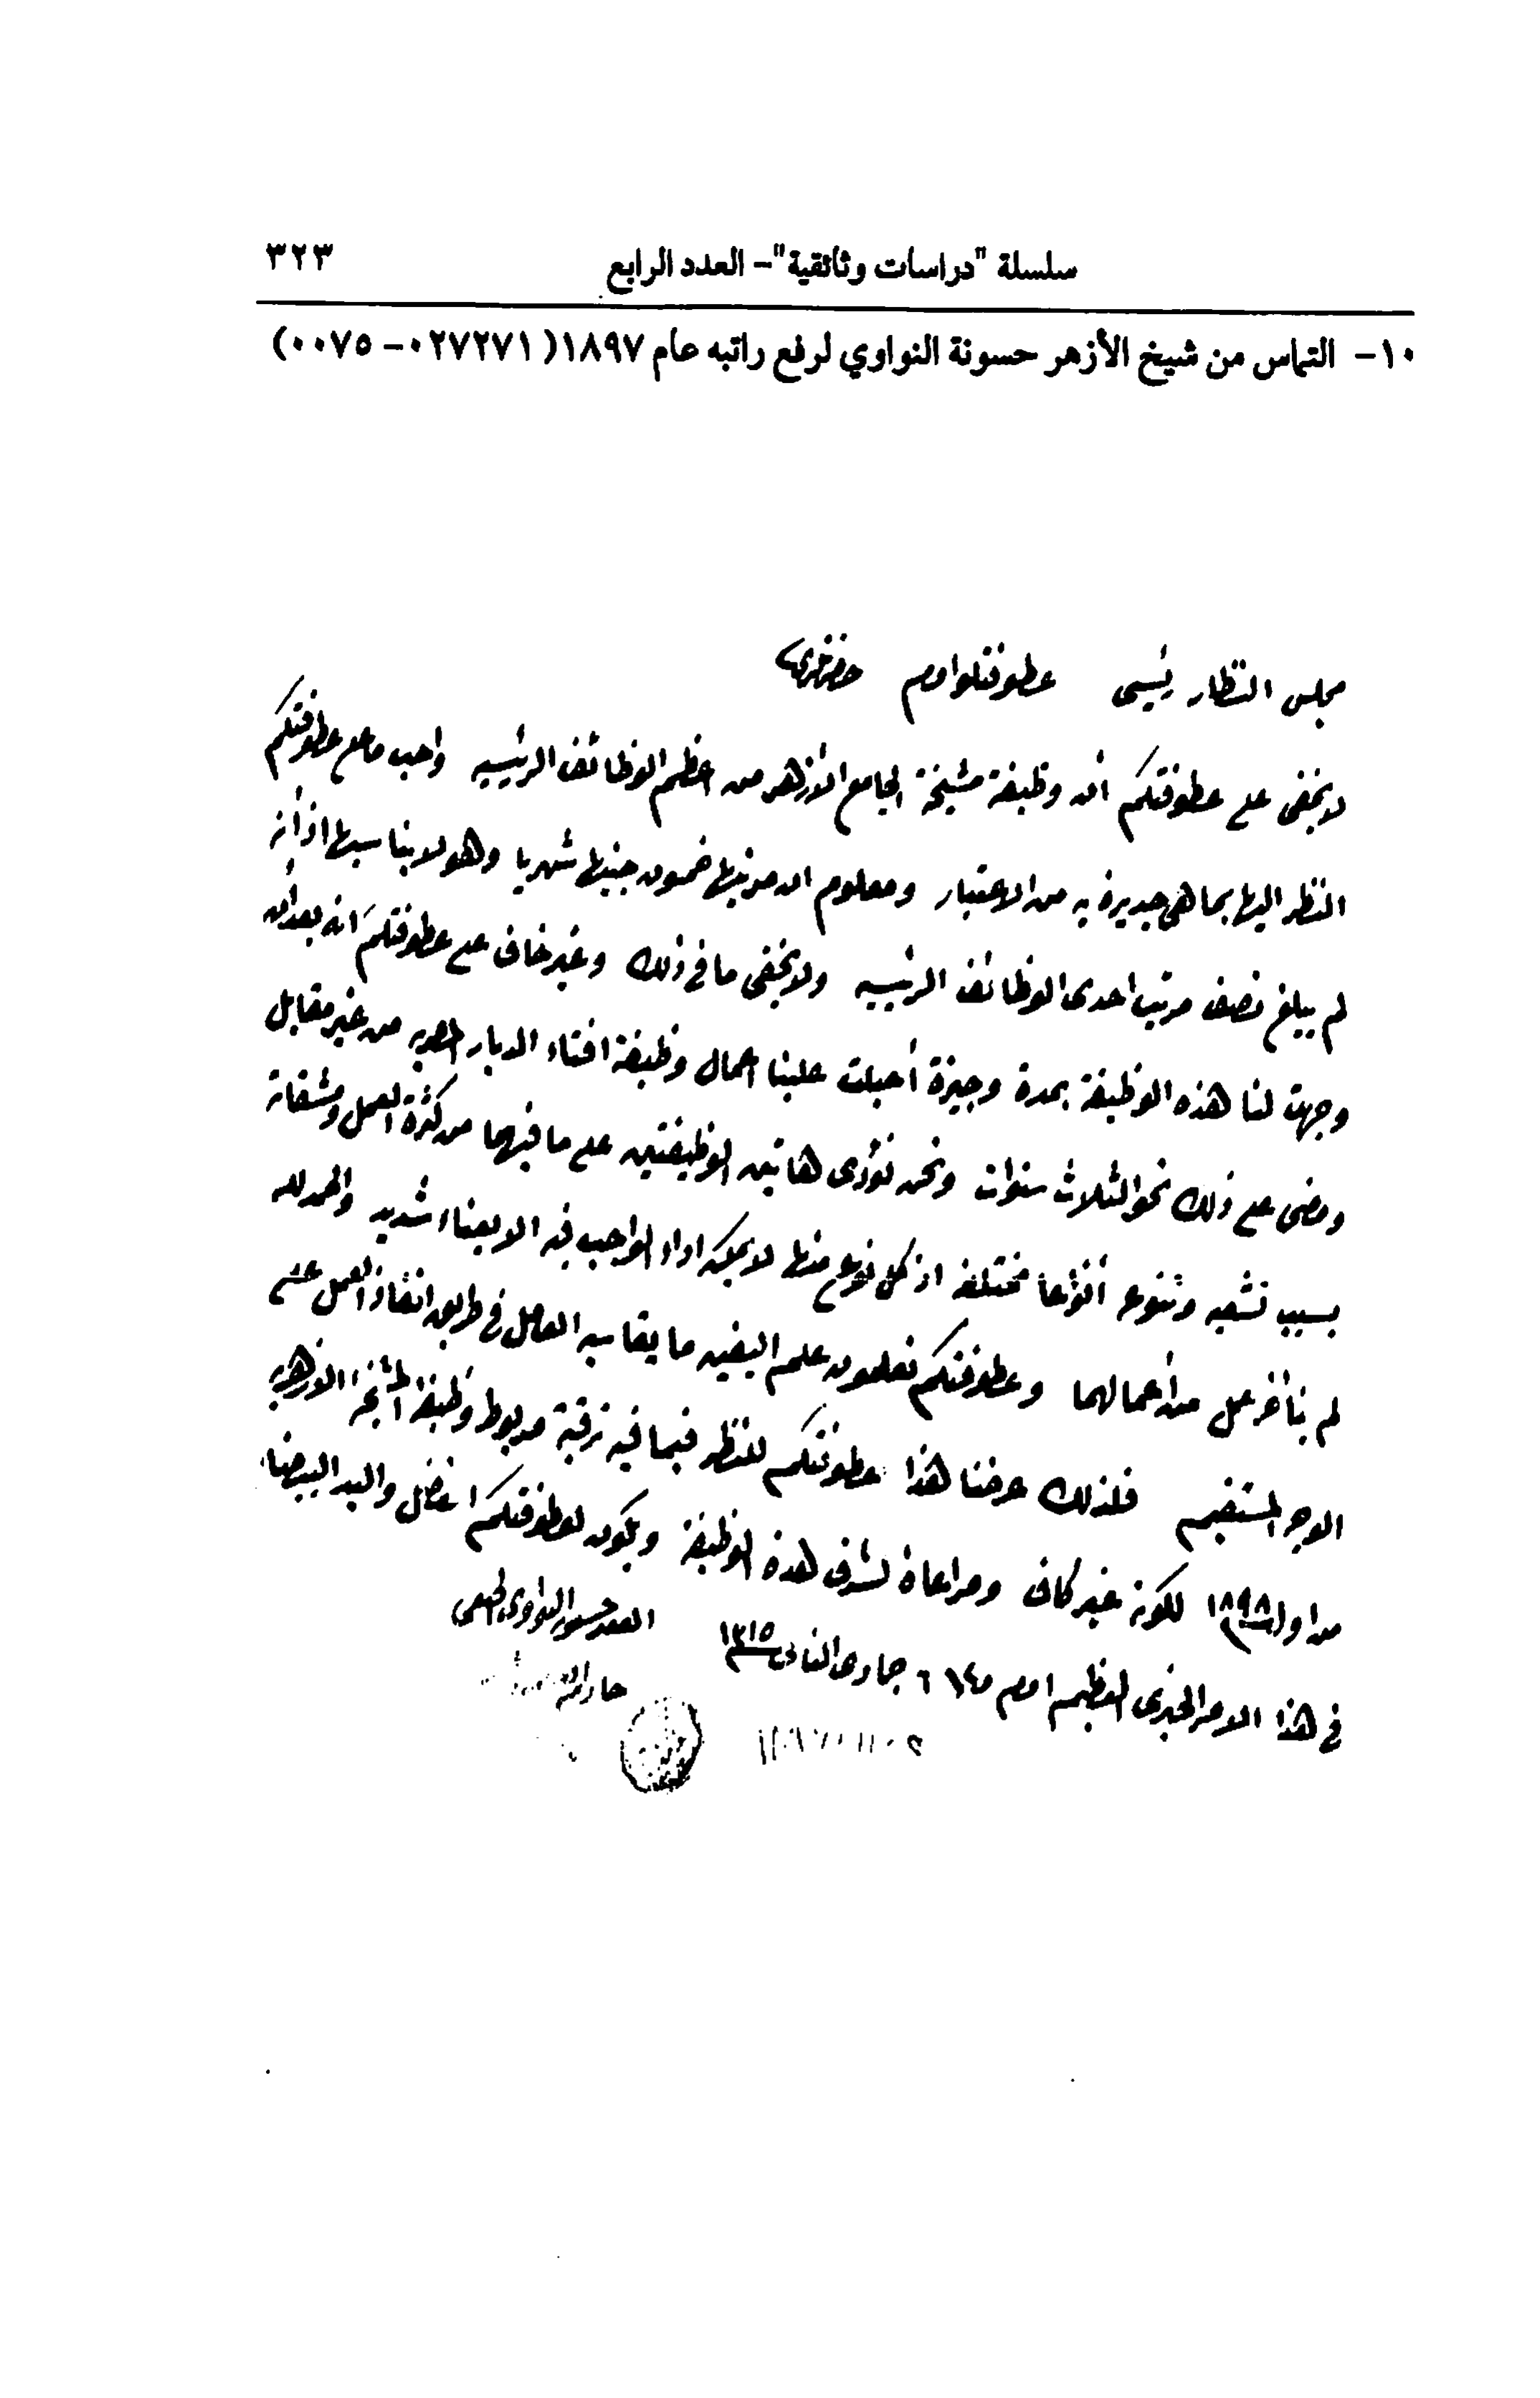 سلسلة "دراسات وثائقية"- العدد الرابع ٣٢٣
١٠- التماس من شيخ الأزهر حسونة النواوي لرفع راتبه عام ١٨٩٧(٠٢٧٢٧١-٠٠٧٥)
مجلس النظار رئيسى عطوفتلو افندم حضرتلرى
لا يخفى على عطوفتكم ان وظيفة مشيخة الجامع الأزهر من اعظم الوظائف الرئيسيه واجب ما على عطوفتكم
النظر اليها بما هى جديرة به من الاعتبار ومعلوم ان مرتبها خمسون جنيها شهريا وهو لا يناسبها اذ أنه
لم يبلغ نصف مرتب احدى الوظائف الرئيسيه ولا يخفى ما فى ذلك وغير خاف على عطوفتكم انه بعد أن
وجهت لنا هذه الوظيفة بمدة وجيزة أحيلت علينا اعمال وظيفة افتاء الديار المصريه من غير مقابل
ومضى على ذلك نحو الثلاث سنوات ونحن نؤدى هاتين الوظيفتين على ما فيهما من كثرة العمل ومشقاته
بسبب تشعبه وتنوعه أنواعا مختلفة اذ كل نوع منها لا يمكن اداء الواجب فيه الا بعناء شديد والحمد لله
لم يتأخر عمل من أعمالهما وعطوفتكم تعلمون علم اليقين ما يقاسيه العامل فى طريق انفاذ العمل على
الوجه المستقيم فلذلك عرضنا هذا لعطوفتكم للنظر فيما فيه ترقية مربوط وظيفة المشيخة الازهريه
من اول سنة ١٨٩٨ لكونه غير كافى ومراعاة لشرف هذه الوظيفة ويكون لعطوفتكم الفضل واليد البيضاء
فى هذا الامر الخيرى العظيم افندم ٦ جمادى الثانى سنة ١٣١٥
الفقير حسونه النواوى الحنفى